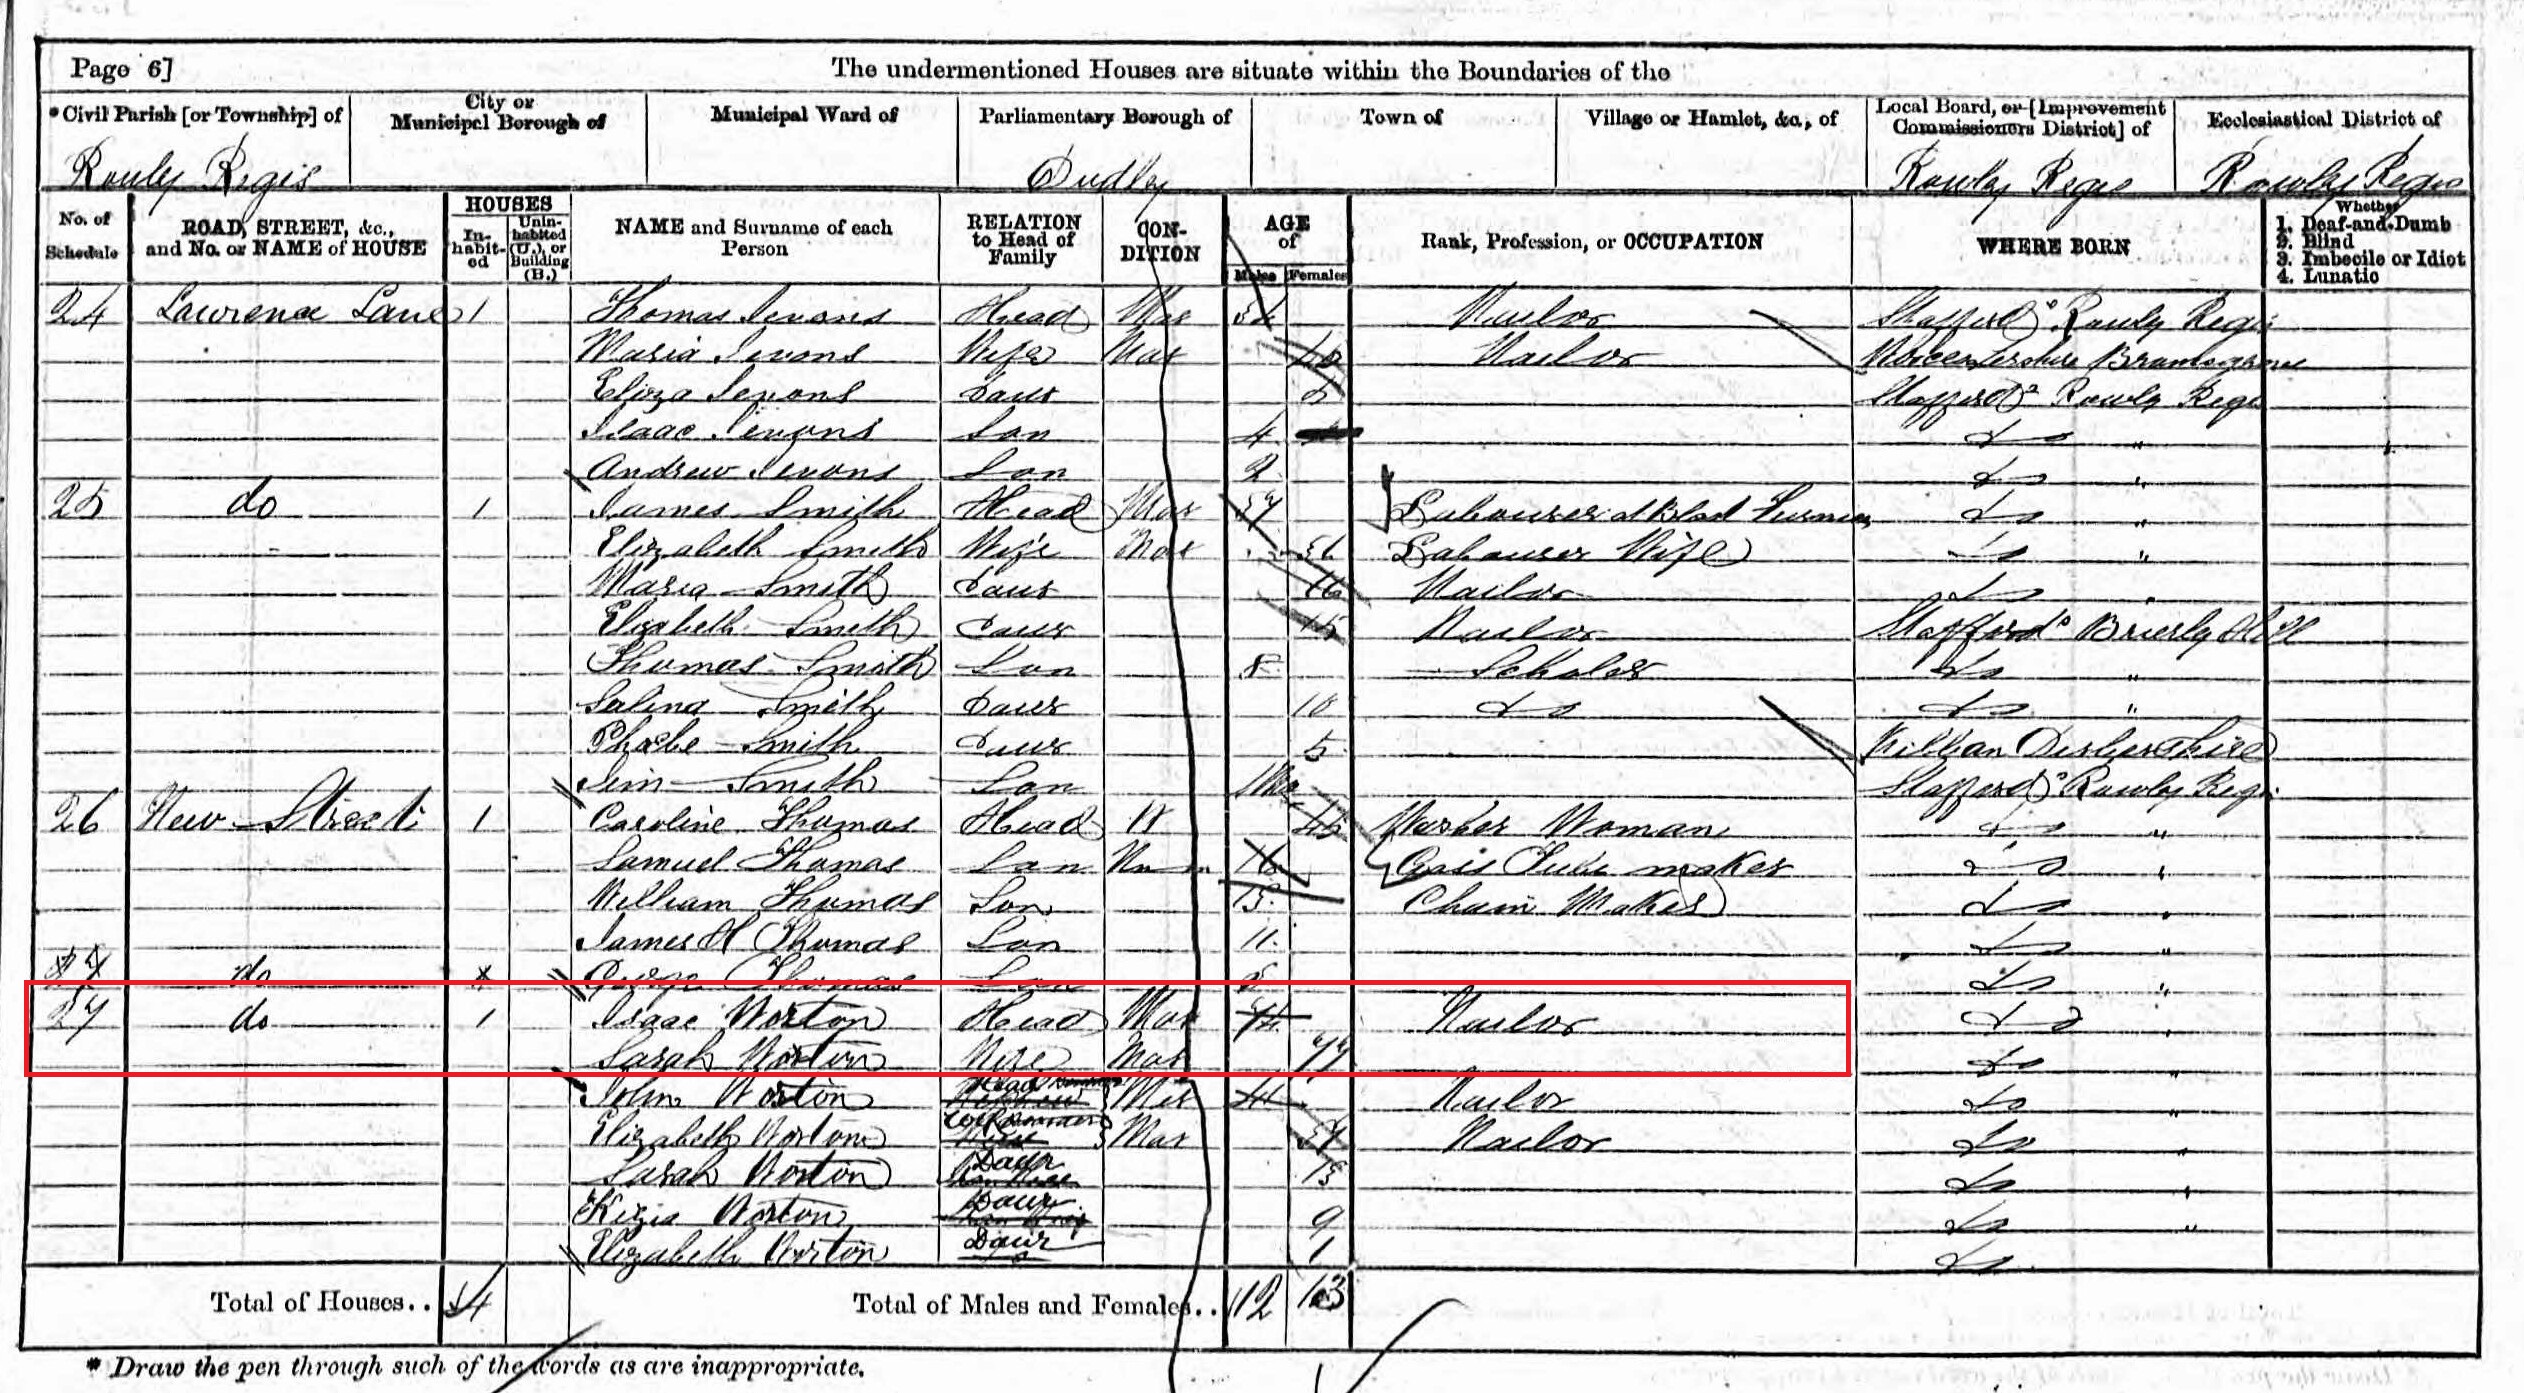 Page 6]
The undermentioned Houses are situate within the Boundaries of the
*Civil Parish [or Township] of
City or Municipal Borough of
Municipal Ward of
Parliamentary Borough of
Town of
Village or Hamlet, &c., of
Local Board, or [Improvement Commissioners District] of
Ecclesiastical District of
Rowley Regis Dudley Rowley Regis Rowley Regis
No. of Schedule
ROAD, STREET, &c., and No. or NAME of HOUSE
HOUSES
In-habit-ed
Unin-habited (U.), or Building (B.)
NAME and Surname of each Person
RELATION to Head of Family
CON-DITION
AGE of
Males Females
Rank, Profession, or OCCUPATION
WHERE BORN
Whether
1. Deaf-and-Dumb
2. Blind
3. Imbecile or Idiot
4. Lunatic
24 Lawrence Lane 1 Thomas Jevons Head Mar Nailor Stafford Rowly Regis
Maria Jevons Wife Mar Nailor Worcestershire Bromsgrove
Eliza Jevons Daur Stafford Rowly Regis
Isaac Jevons Son 4 Do "
Andrew Jevons Son 2 Do "
25 do 1 James Smith Head Mar Labourer at Blast Furnace Do "
Elizabeth Smith Wife Mar Labourer Wife Do "
Maria Smith Daur 16 Nailor Do "
Elizabeth Smith Daur 15 Nailor Stafford Brierly Hill
Thomas Smith Son 8 Scholar Do "
Selina Smith Daur 10 Do Do "
Phoebe Smith Daur 5 Derbershire
Jim Smith Son Stafford Rowly Regis
26 New Street 1 Caroline Thomas Head W 45 Washer Woman Do "
Samuel Thomas Son Unm 16 Gass Tube maker Do "
William Thomas Son 15 Chain Maker Do "
James H Thomas Son 11 Do "
27 do George Thomas Son Do "
27 do 1 Isaac Worton Head Mar 74 Nailor Do "
Sarah Worton Wife Mar 77 Do "
John Worton Head Mar Nailor Do "
Elizabeth Worton Mar Nailor Do "
Sarah Worton Daur 13 Do "
Kezia Worton Daur 9 Do "
Elizabeth Worton Daur 1 Do
Total of Houses.. 4 Total of Males and Females.. 12 13
* Draw the pen through such of the words as are inappropriate.